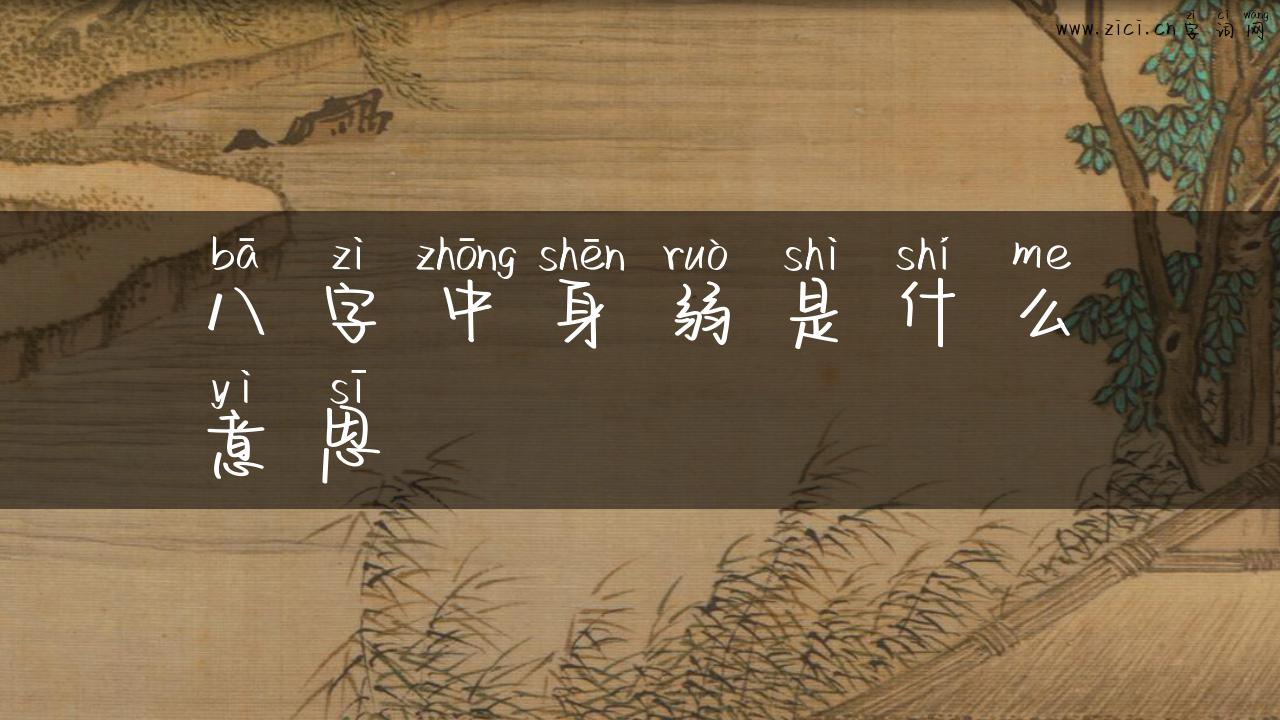 zì cí wǎng
www.zici.cn字词网
bā zì zhōng shēn ruò shì shí me
八字中身弱是什么
yì sī
意思